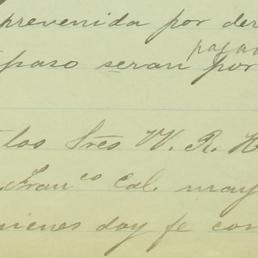 prevenida por der
pagad
paso seran por
los Sres W. R. H
Franco Cal. may
uienes doy fe con